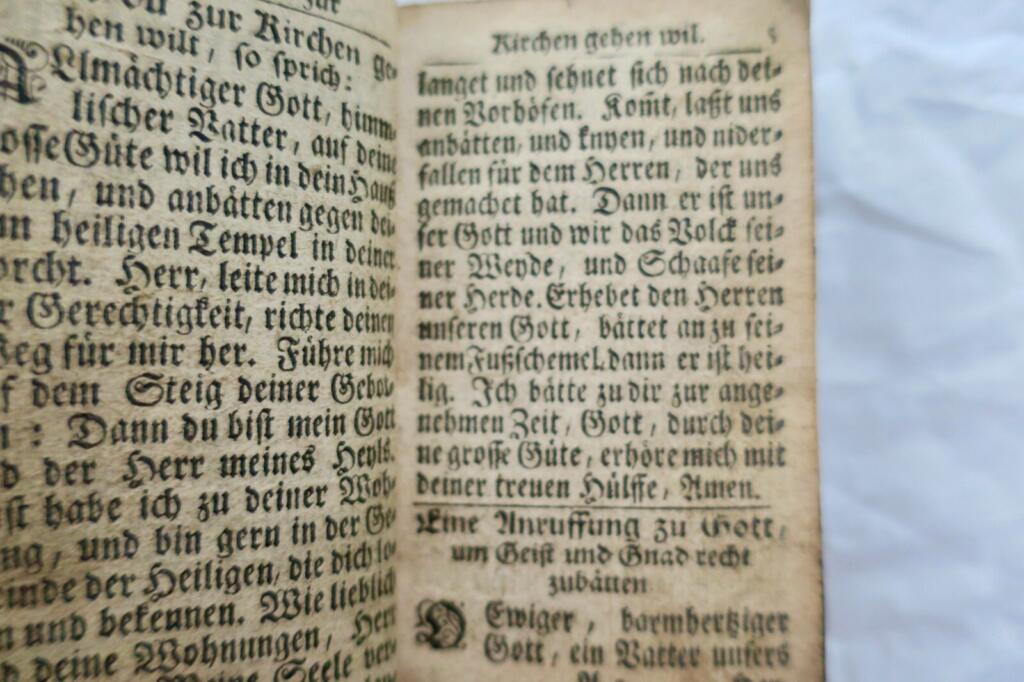 zur Kirchen ge-
hen wilt, so sprich:
ALlmächtiger Gott, himm-
lischer Vatter, auf deine
osse Güte wil ich in dein Hauß
hen, und anbätten gegen dei-
m heiligen Tempel in deiner
orcht. Herr, leite mich in dei-
r Gerechtigkeit, richte deinen
eg für mir her. Führe mich
f dem Steig deiner Gebot-
n : Dann du bist mein Gott
d der Herr meines Heyls.
st habe ich zu deiner Woh-
ng, und bin gern in der Ge-
einde der Heiligen, die dich lo-
n und bekennen. Wie lieblich
d deine Wohnungen, Herr
Meine Seele ver-
Kirchen gehen wil. 5
langet und sehnet sich nach dei-
nen Vorhöfen. Kom̃t, laßt uns
anbätten, und knyen, und nider-
fallen für dem Herren, der uns
gemachet hat. Dann er ist un-
ser Gott und wir das Volck sei-
ner Weyde, und Schaafe sei-
ner Herde. Erhebet den Herren
unseren Gott, bättet an zu sei-
nem Fußschemel. dann er ist hei-
lig. Ich bätte zu dir zur ange-
nehmen Zeit, Gott, durch dei-
ne grosse Güte, erhöre mich mit
deiner treuen Hülffe, Amen.
Eine Anruffung zu Gott,
um Geist und Gnad recht
zubätten
O Ewiger, barmhertziger
Gott, ein Vatter unsers